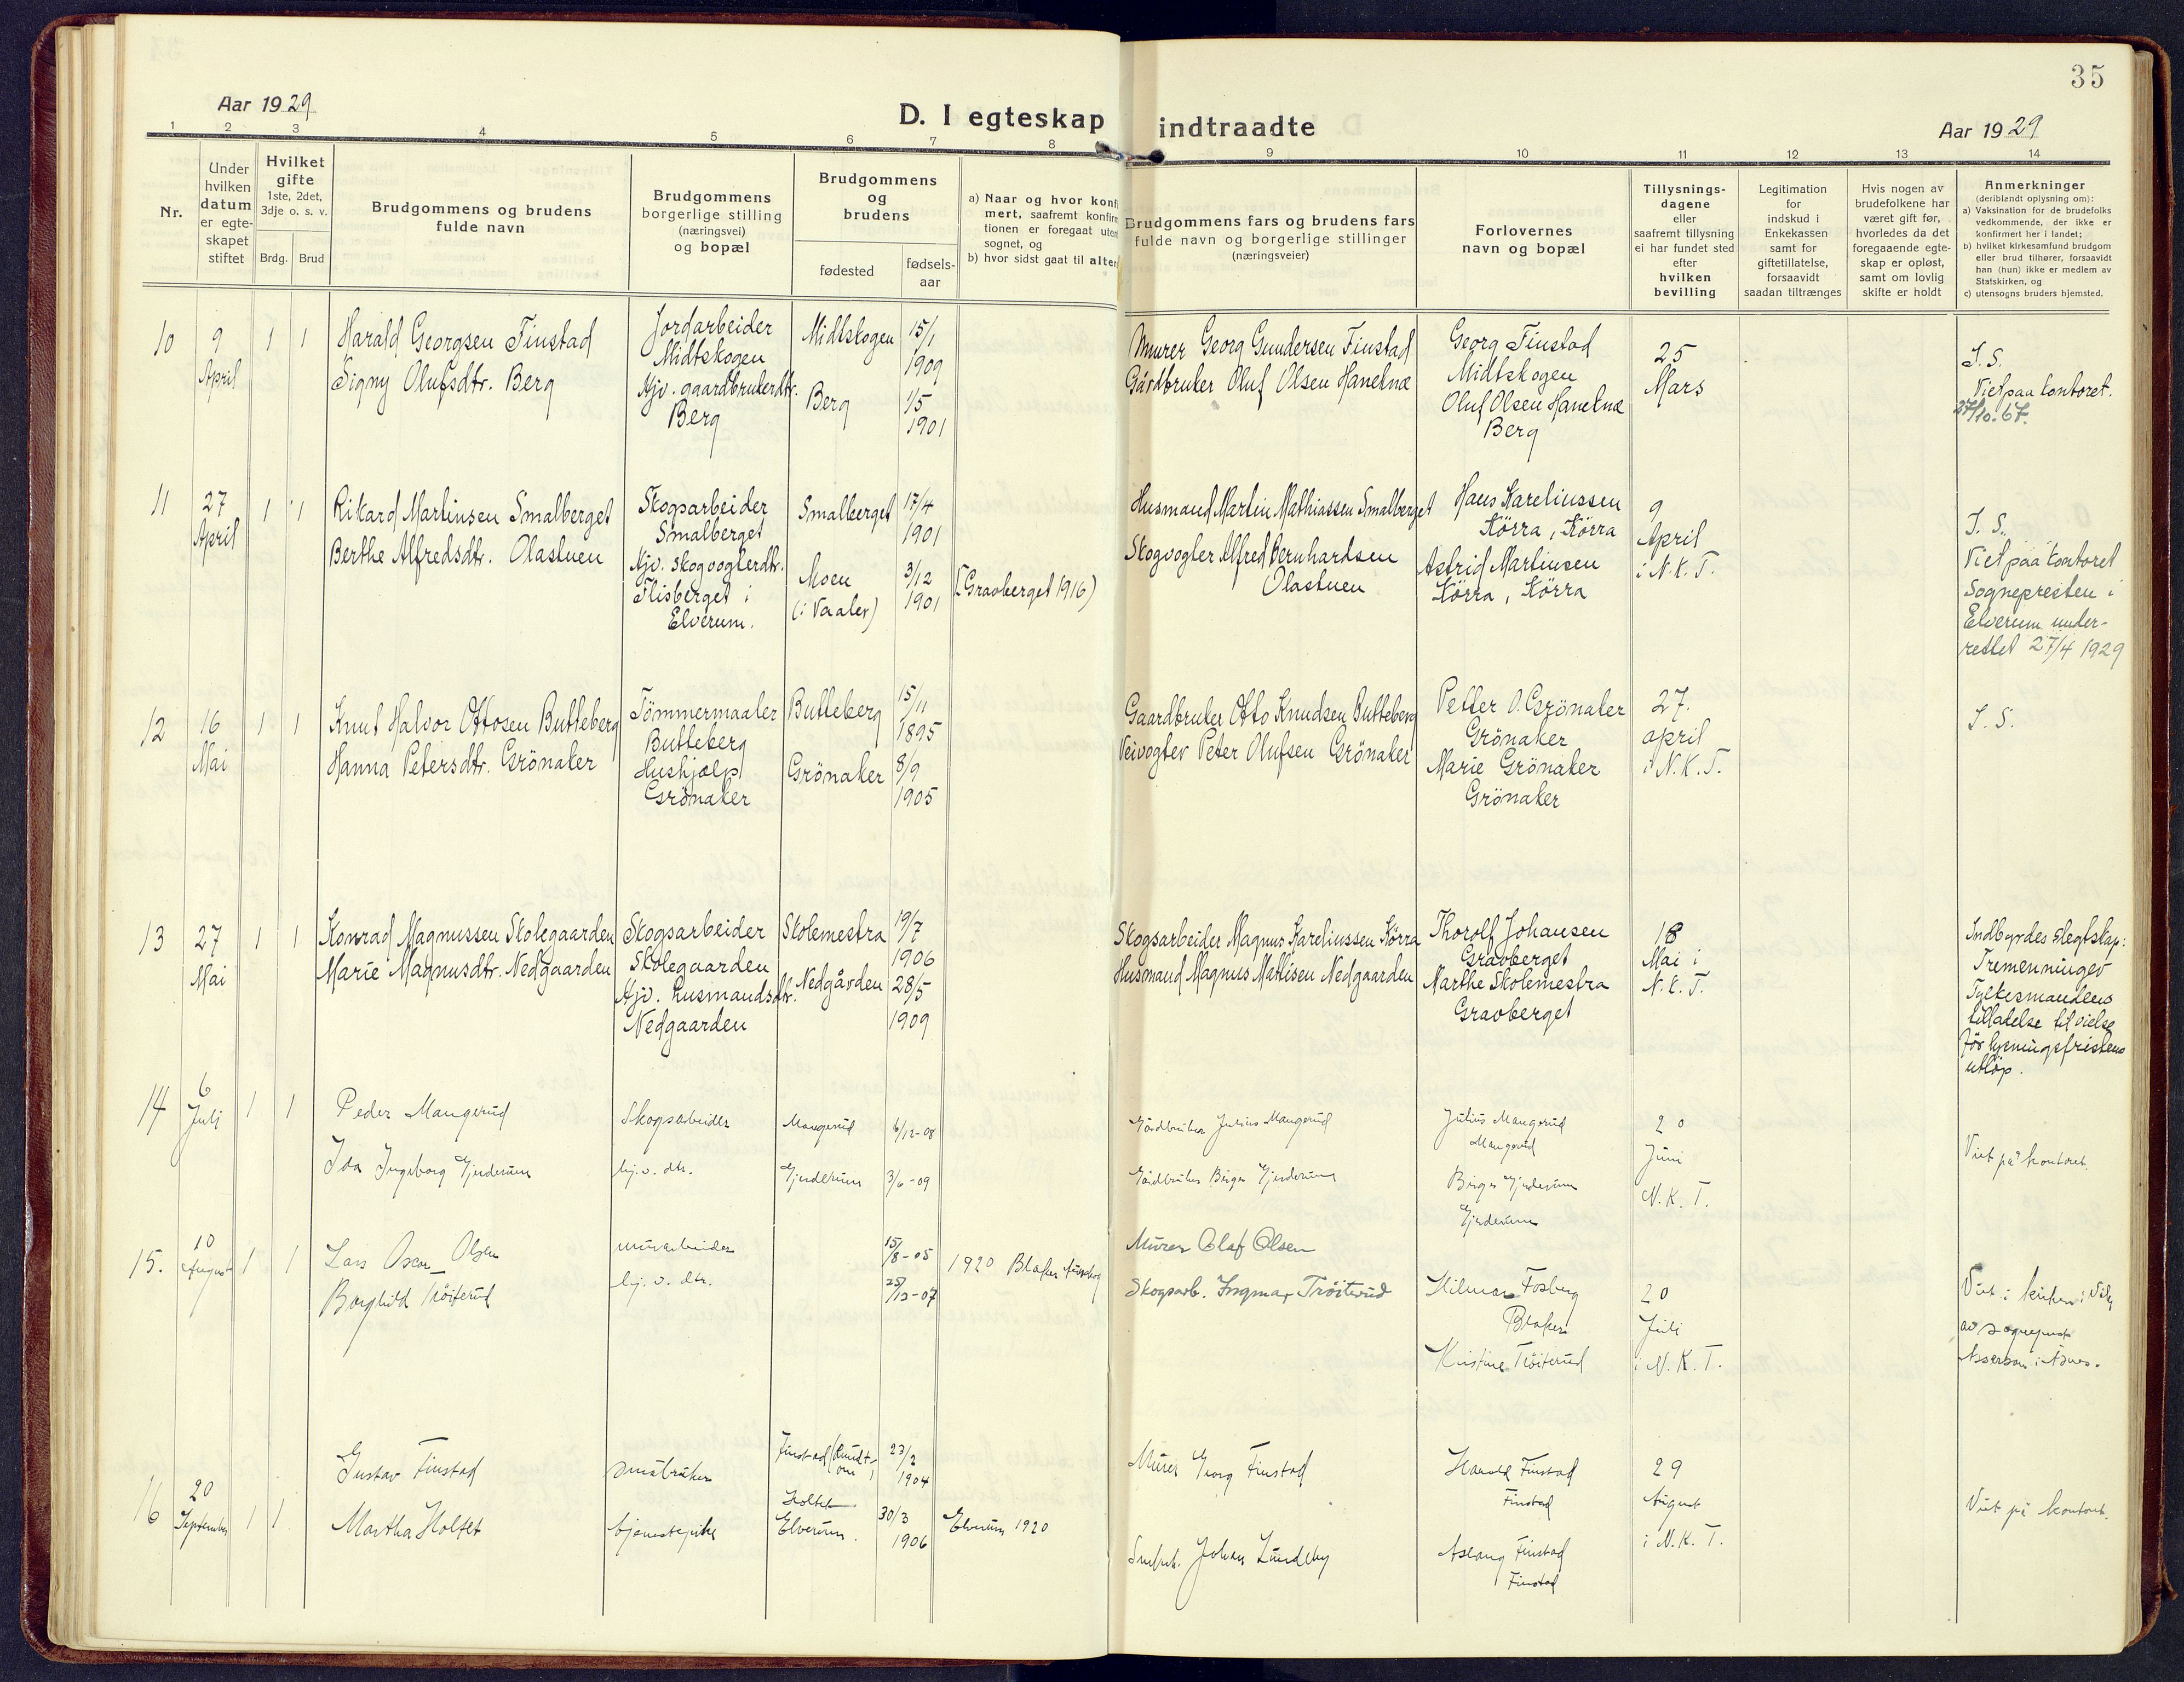 35
Aar 1929
D. I egteskap indtraadte
Aar 1929
1 2 3 4 5 6 7 8 9 10 11 12 13 14
Nr.
Under hvilken datum er egte-skapet stiftet
Hvilket gifte 1ste, 2det, 3dje o. s. v.
Brdg. Brud
Brudgommens og brudens fulde navn
Brudgommens borgerlige stilling (næringsvei) og bopæl
Brudgommens og brudens
fødested
fødsels-aar
a) Naar og hvor konfi
mert, saafremt konfirm
tionen er foregaat uten
sognet, og
b) hvor sidst gaat til alter
Brudgommens fars og brudens fars fulde navn og borgerlige stillinger (næringsveier)
Forlovernes navn og bopæl
Tillysnings-dagene eller saafremt tillysning ei har fundet sted efter hvilken bevilling
Legitimation for indskud i Enkekassen samt for giftetillatelse, forsaavidt saadan tiltrænges
Hvis nogen av brudefolkene har været gift før, hvorledes da det foregaaende egte-skap er opløst, samt om lovlig skifte er holdt
Anmerkninger
(deriblandt oplysning om):
a) Vaksination for de brudefolks vedkommende, der ikke er konfirmert her i landet;
b) hvilket kirkesamfund brudgom eller brud tilhører, forsaavidt han (hun) ikke er medlem av Statskirken, og
c) utensogns bruders hjemsted.
10
9 April
1 1
Harald Georgsen Finstad
Signy Olufsdtr. Berg
Jordarbeider
Midtskogen
Hjv. gaardbrukerdtr.
Berg
Midtskogen
Berg
15/1
1909
1/5
1901
Murer Georg Gundersen Finstad
Gårdbruker Oluf Olsen Haneknæ
Georg Finstad
Midtskogen
Oluf Olsen Haneknæ
Berg
25
Mars
I. S.
Viet paa kontoret.
27/10.67.
11
27 April
1 1
Rikard Martinsen Smalberget
Berthe Alfredsdtr. Olastuen
Skogsarbeider
Smalberget
Hjv. skogvogterdtr.
Flisberget i
Elverum.
Smalberget
Moen
(i Vaaler)
17/4
1901
3/12
1901
(Gravberget 1916)
Husmand Martin Mathiassen Smalberget
Skogvogter Alfred Bernhardsen
Olastuen
Hans Kareliussen
Körra, Körra
Astrid Martinsen
Körra, Körra
9
April
i N. K. T.
I. S.
Viet paa kontoret
Sognepresten i
Elverum under-
rettet 27/4 1929
12
16 Mai
1 1
Knut Halvor Ottosen Butteberg
Hanna Petersdtr. Grönaker
Tömmermaaler
Butteberg
Hushjælp
Grönaker
Butteberg
Grönaker
15/11
1895
8/9
1905
Gaardbruker Otto Knudsen Butteberg
Veivogter Peter Olufsen Grönaker
Petter O. Grönaker
Grönaker
Marie Grönaker
Grönaker
27.
april
i N. K. T.
I. S.
13
27 Mai
1 1
Konrad Magnussen Skolegaarden
Marie Magnusdtr. Nedgaarden
Skogsarbeider
Skolegaarden
Hjv. husmandsdtr.
Nedgaarden
Skolemestra
Nedgården
19/7
1906
28/5
1909
Skogsarbeider Magnus Kareliussen Körra
Husmand Magnus Mathisen Nedgaarden
Thorolf Johansen
Gravberget
Marthe Skolemestra
Gravberget
18
Mai i
N. K. T.
Indbyrdes slegtskap:
Tremenninger
Fylkesmandens
tilladelse til vielse
för lysningsfristens
utlöp.
14
6 Juli
1 1
Peder Mangerud
Ida Ingeborg Gjerderum
Skogsarbeider
hj.v. dtr.
Mangerud
Gjerderum
6/12-08
3/6-09
Gårdbruker Julius Mangerud
Gårdbruker Birger Gjerderum
Julius Mangerud
Mangerud
Birger Gjerderum
Gjerderum
20
Juni
N. K. T.
Viet på kontoret.
15.
10 August
1 1
Lars Oscar Olsen
Borghild Tröiterud
murarbeider
hj.v. dtr.
15/8-05
25/12-07
1920 Blaker
Murer Olaf Olsen
Skogsarb. Ingmar Tröiterud
Hilmar Fosberg
Blaker
Kristine Tröiterud
20
Juli
i N. K. T.
Viet i kirken i
av sogneprest
i Åsnes.
16
20 September
1 1
Gustav Finstad
Martha Holtet
småbruker
tjenestepike
Finstad
Holtet
Elverum.
23/2
1904
30/3
1906
Elverum 1920
Murer Georg Finstad
Småbr. Johan Lundeby
Harald Finstad
Finstad
Aslaug Finstad
Finstad
29
August
i N. K. T.
Viet på kontoret.